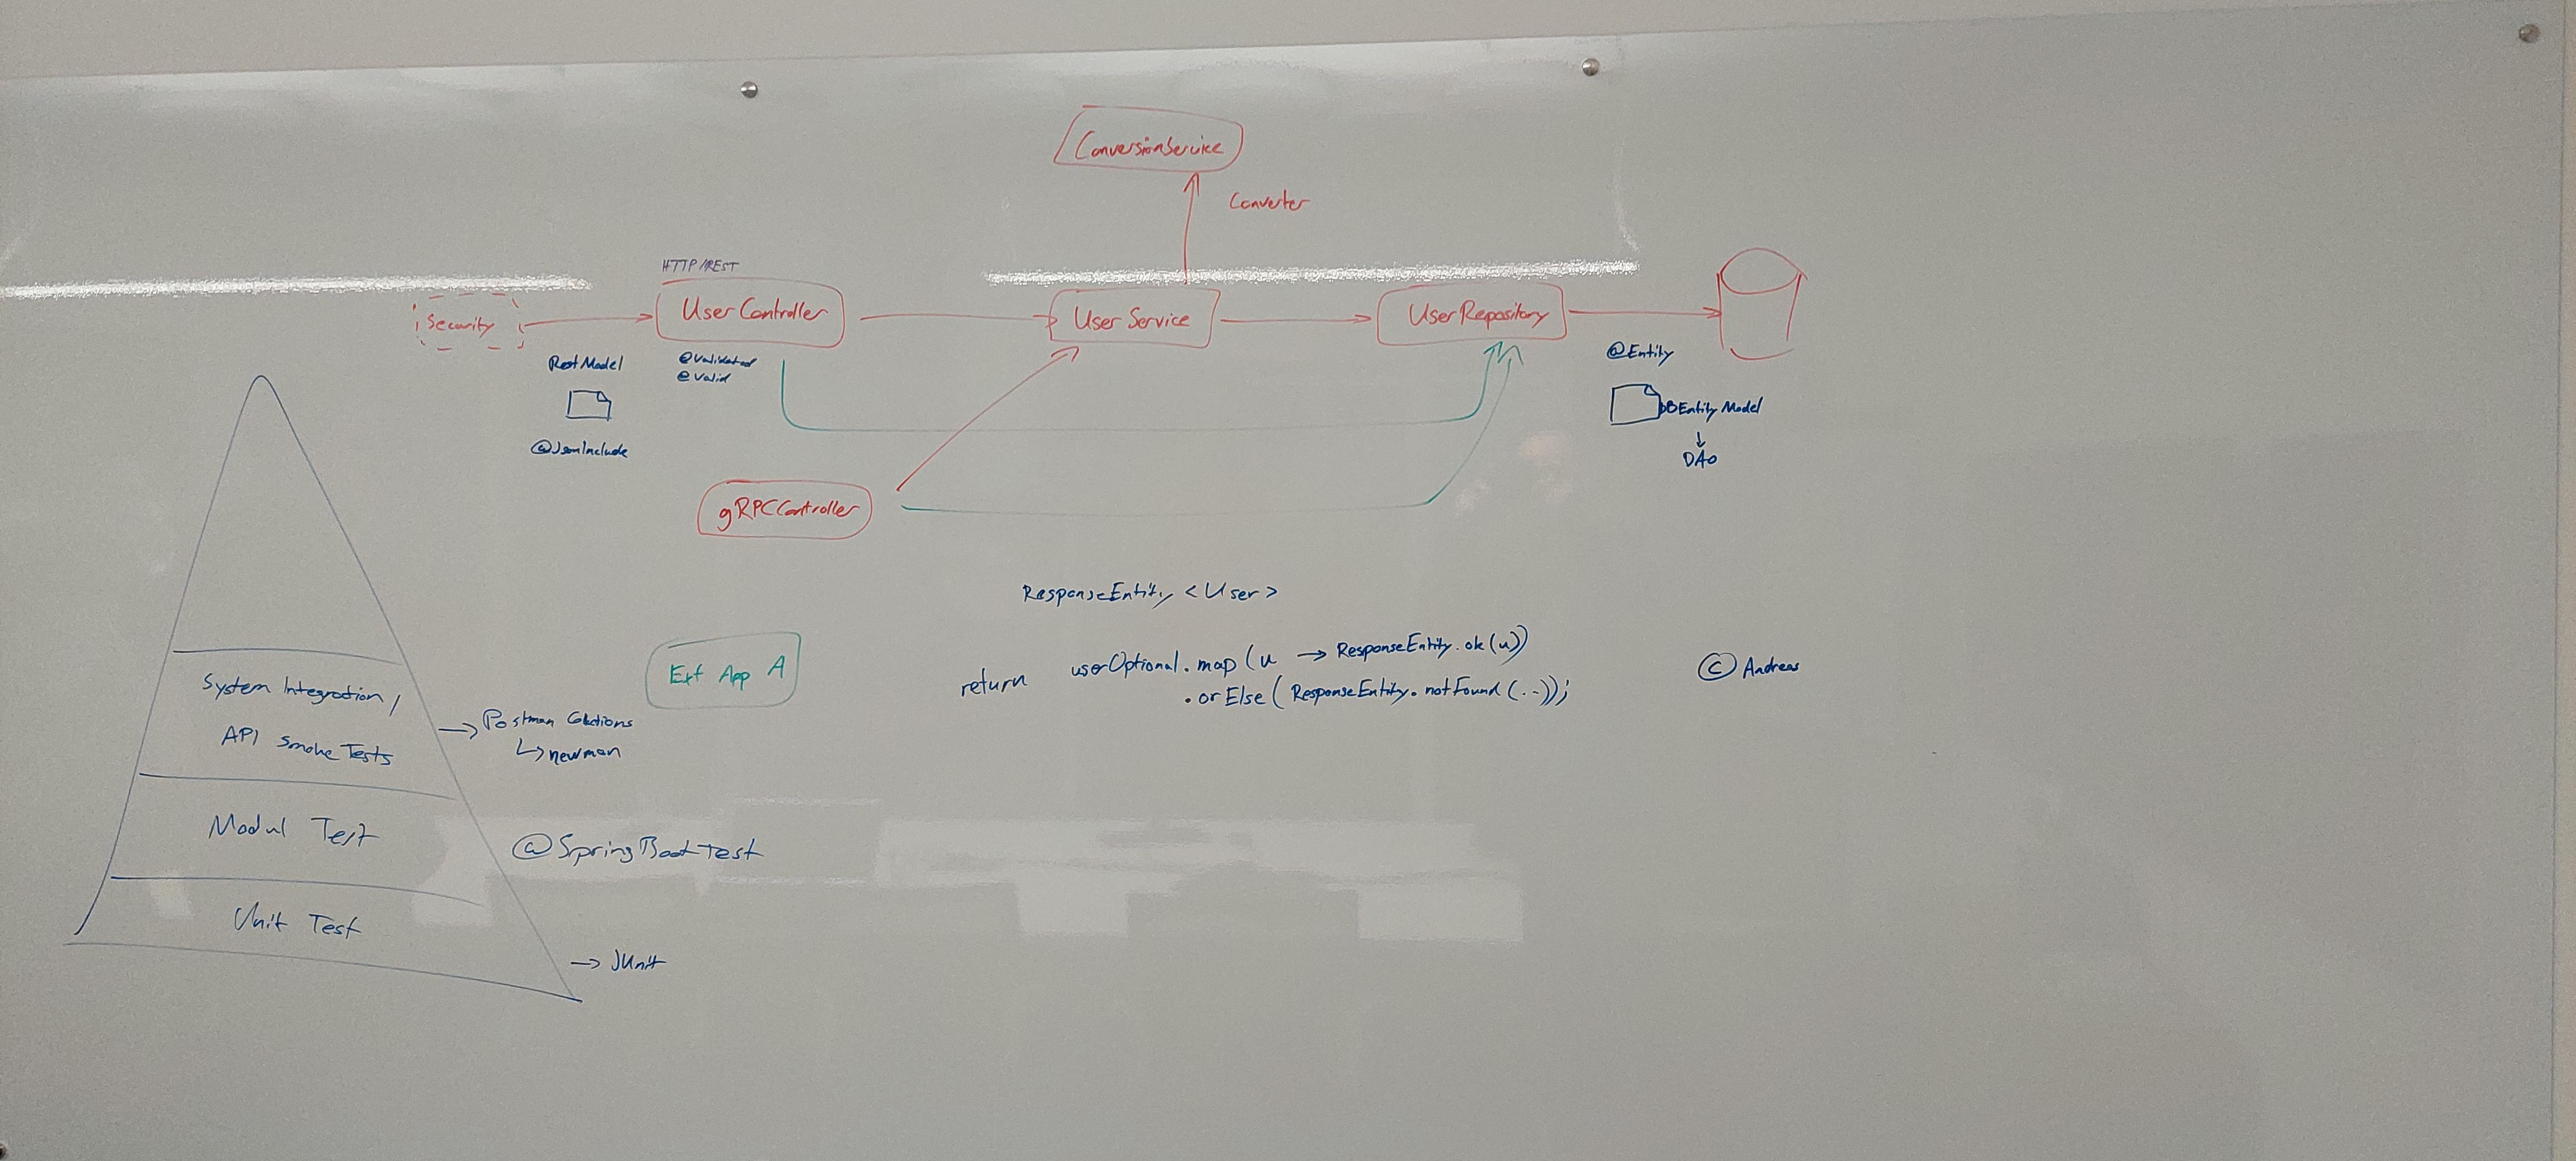 ConversionService
Converter
HTTP/REST
Security
UserController
UserService
UserRepository
RestModel
@Validated
@Valid
@JsonInclude
@Entity
DBEntityModel
DAO
gRPCController
ResponseEntity <User>
return userOptional.map(u → ResponseEntity.ok(u))
.orElse(ResponseEntity.notFound(..));
© Andreas
Ext App A
System Integration,
API Smoke Tests
→ Postman Collections
↳ newman
Modul Test
@SpringBootTest
Unit Test
→ JUnit